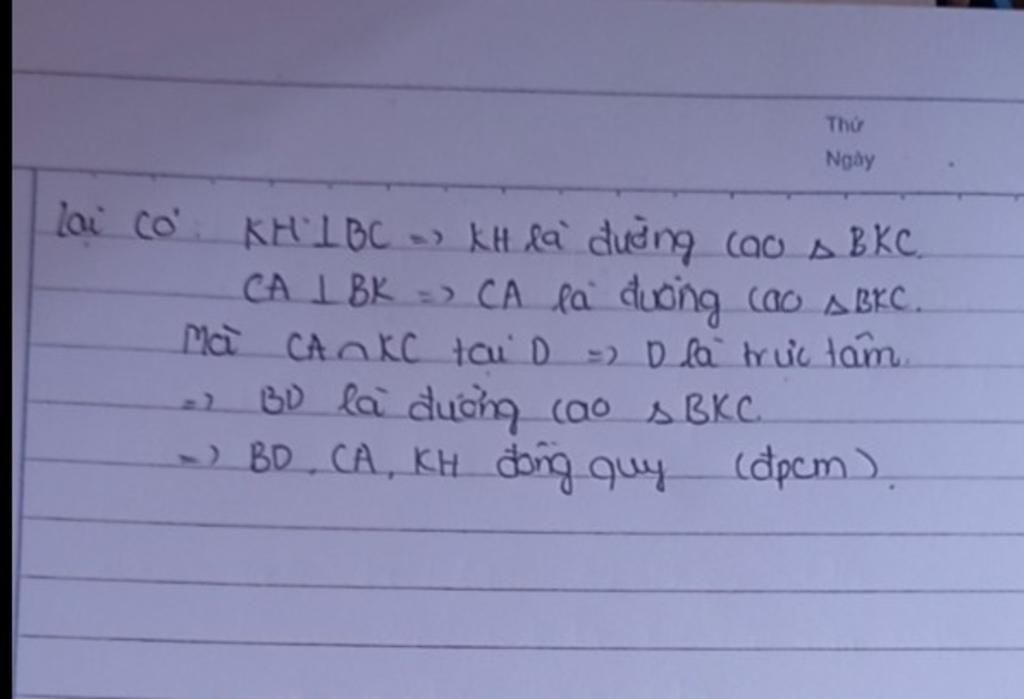 Thứ
Ngày
lại có: KH ⊥ BC => KH là đường cao △ BKC.
CA ⊥ BK => CA là đường cao △BKC.
Mà CA ∩ KC tại D => D là trực tâm.
=> BD là đường cao △ BKC.
=> BD, CA, KH đồng quy (đpcm).